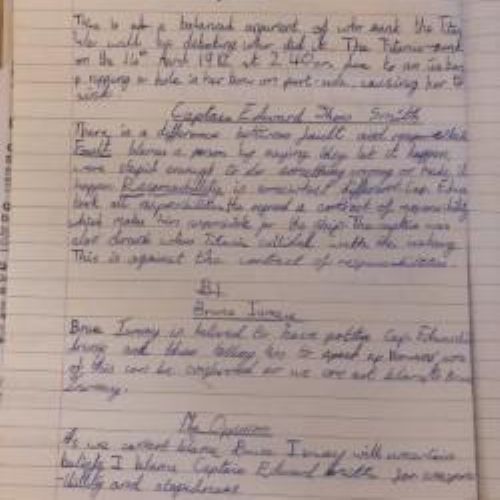 This is not a balanced argument, of who sank the Titanic
We will be debating who did it. The Titanic sank
on the 14th April 1912 at 2.40am due to an iceberg
a hole in her bow on port side, causing her to
sink.
Captain Edward Smith
There is a difference between fault and responsibility
Fault blames a person by saying they let it happen
were stupid enough to do something wrong or made it
happen. Responsibility is somewhat different. Cap. Edward
took all responsibility he signed a contract of responsibility
which makes him responsible for the ship. The captain was
also drunk when Titanic collided with the iceberg
This is against the contract of responsibilities.
Bruce Ismay
Bruce Ismay is believed to have Cap. Edward
and then telling him to speed up. However none
of this can be confirmed so we are not blaming Bruce
Ismay.
My Opinion
As we cannot blame Bruce Ismay with uncertain
beliefs I blame Captain Edward Smith for
and stupidness